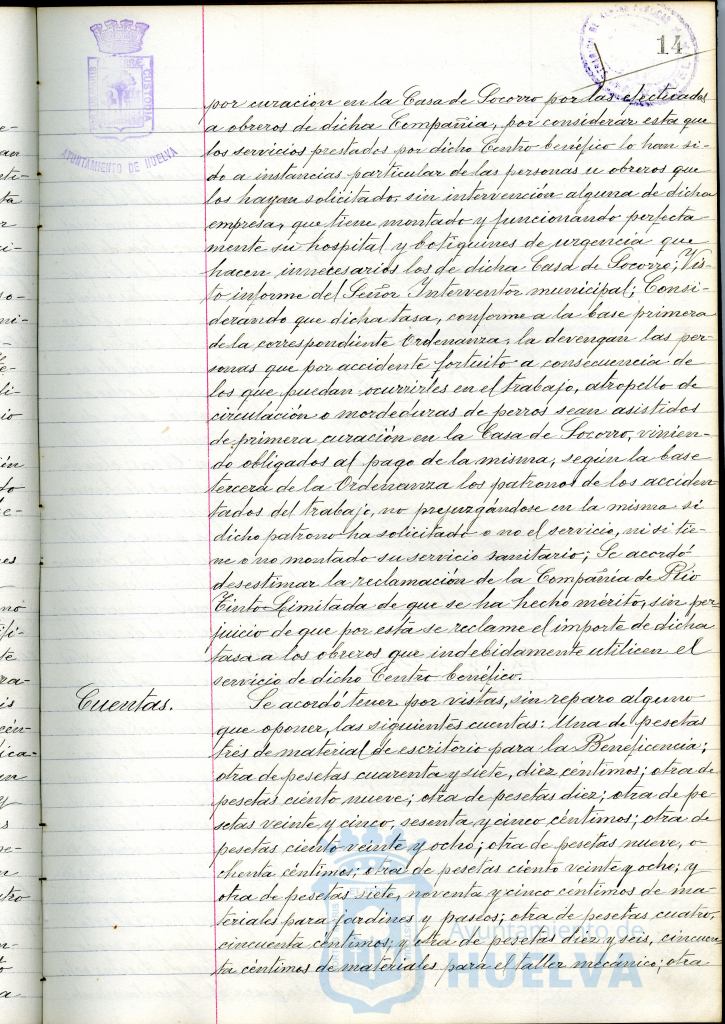 14
AYUNTAMIENTO DE HUELVA
por curación en la Casa de Socorro por las efectuadas
a obreros de dicha Compañia, por considerar esta que
los servicios prestados por dicho Centro benéfico lo han si-
do a instancias particular de las personas u obreros que
los hayan solicitado, sin intervención alguna de dicha
empresa, que tiene montado y funcionando perfecta
mente su hospital y botiquines de urgencia que
hacen innecesarios los de dicha Casa de Socorro; Vis-
to informe del Señor Interventor municipal; Consi-
derando que dicha tasa, conforme a la base primera
de la correspondiente Ordenanza, la devengan las per-
sonas que por accidente fortuito a consecuencia de
los que puedan ocurrirles en el trabajo, atropello de
circulación o mordeduras de perros sean asistidos
de primera curación en la Casa de Socorro, vinien-
do obligados al pago de la misma, según la base
tercera de la Ordenanza los patronos de los acciden-
tados del trabajo, no prejuzgándose en la misma si
dicho patrono ha solicitado o no el servicio, ni si tie-
ne o no montado su servicio sanitario; Se acordó
desestimar la reclamación de la Compañia de Rio
Tinto Limitada de que se ha hecho mérito, sin per
juicio de que por esta se reclame el importe de dicha
tasa a los obreros que indebidamente utilicen el
servicio de dicho Centro benéfico.
Cuentas.
Se acordó tener por vistas, sin reparo alguno
que oponer, las siguientes cuentas: Una de pesetas
tres de material de escritorio para la Beneficencia;
otra de pesetas cuarenta y siete, diez céntimos; otra de
pesetas ciento nueve; otra de pesetas diez; otra de pe-
setas veinte y cinco, sesenta y cinco céntimos; otra de
pesetas ciento veinte y ocho; otra de pesetas nueve, o-
chenta céntimos; otra de pesetas ciento veinte y ocho; y
otra de pesetas siete, noventa y cinco céntimos de ma-
teriales para jardines y paseos; otra de pesetas cuatro,
cincuenta céntimos; y otra de pesetas diez y seis, cincuen
ta céntimos de materiales para el taller mecánico; otra
Ayuntamiento de
HUELVA